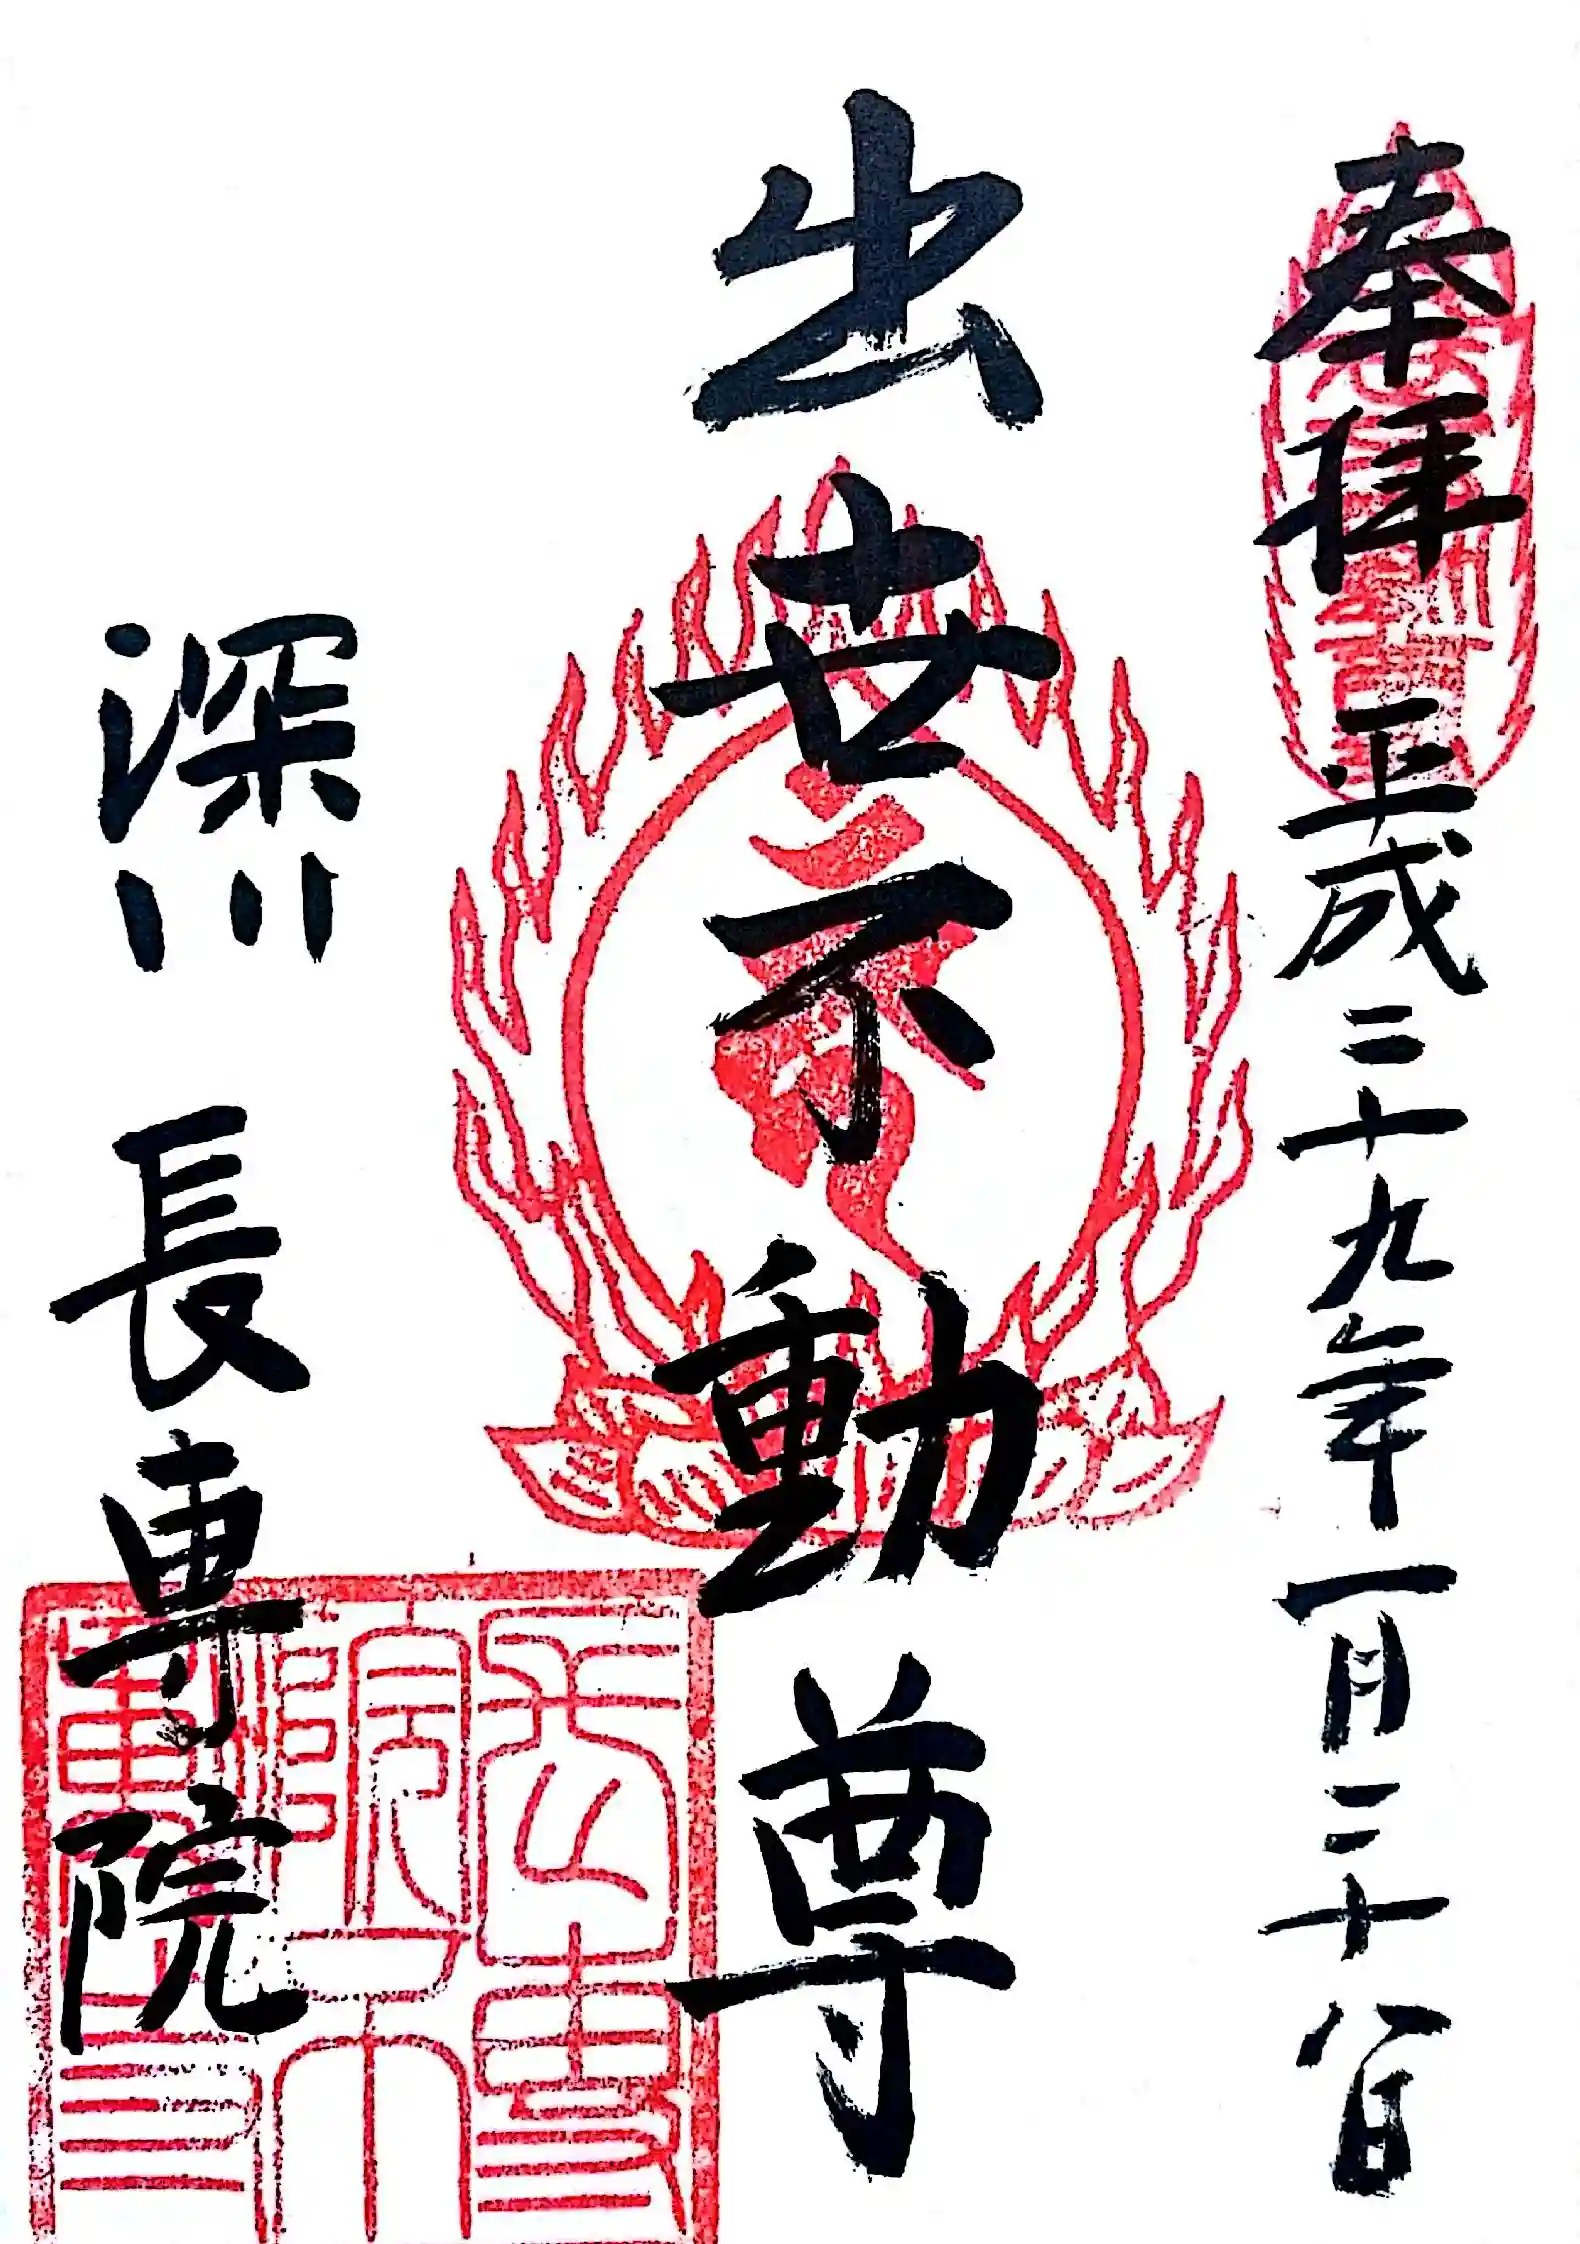 奉拝 平成二十九年一月二十八日
出世不動尊
深川 長専院